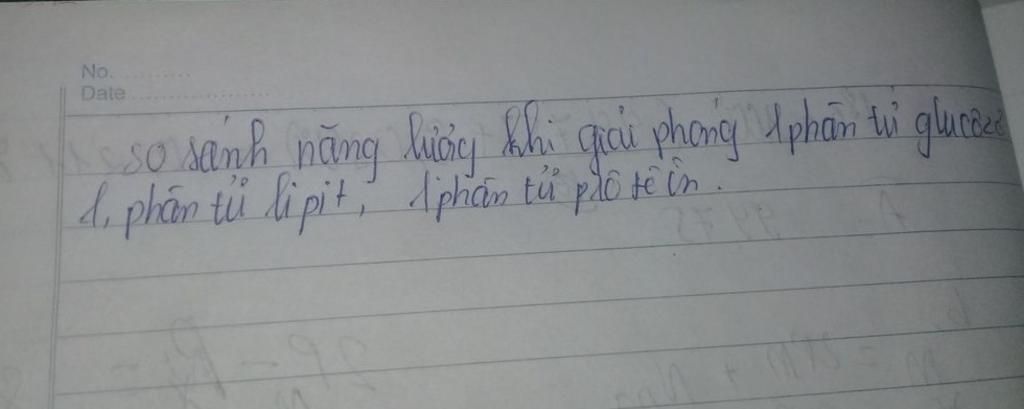 No. ............
Date ....................
so sánh năng lượng khi giải phóng 1 phân tử glucôzơ
1, phân tử lipit, 1 phân tử plôtêin.